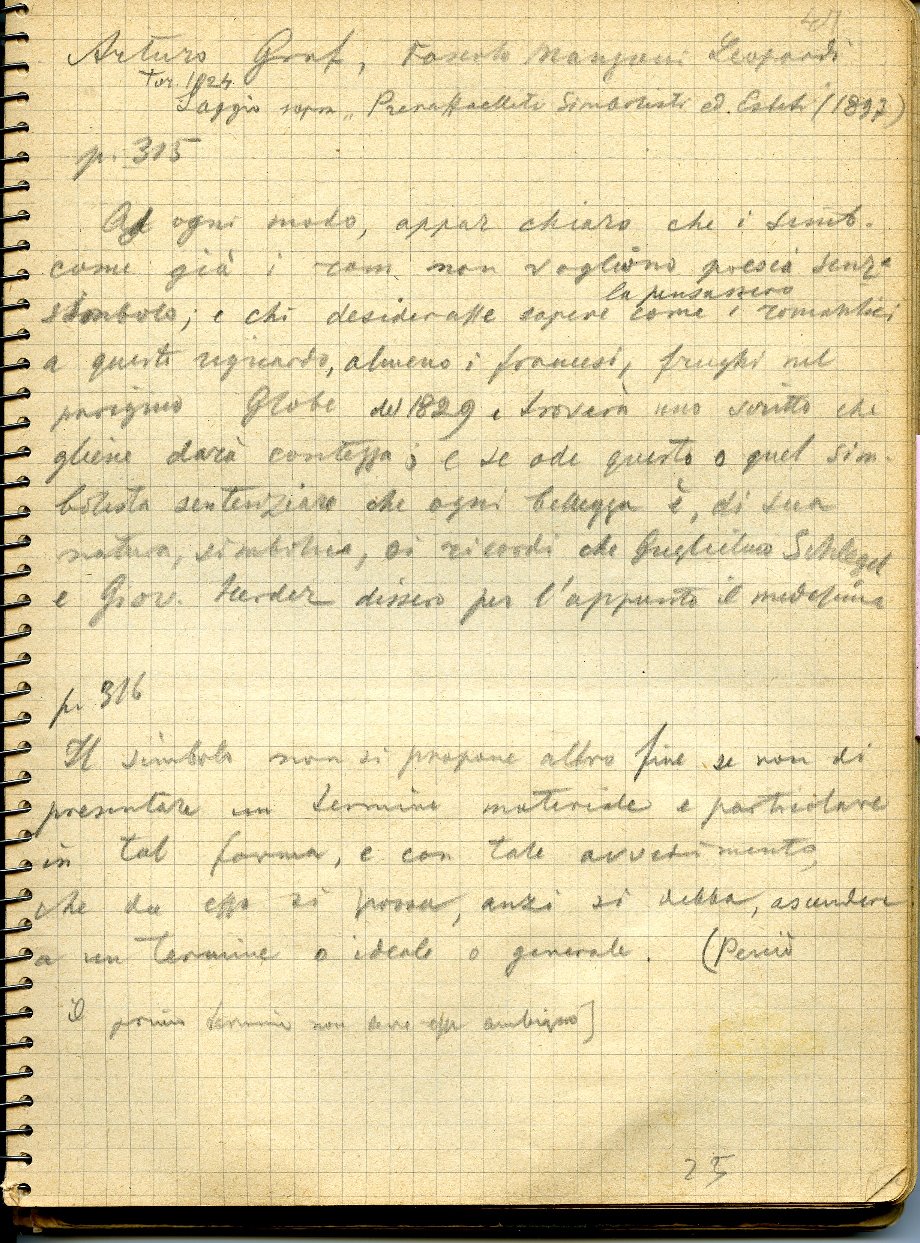 Arturo Graf, Foscolo Manzoni Leopardi
Tor. 1924
Saggio sopra „Preraffaelliti Simbolisti ed Esteti" (1897)
p. 315
Ad ogni modo, appar chiaro che i simb.
come già i rom. non vogliono poesia senza
la pensassero
simbolo; e chi desiderasse sapere come i romantici
a questo riguardo, almeno i francesi, frughi nel
parigino Globe del 1829 e troverà uno scritto che
gliene darà contezza; e se ode questo o quel sim-
bolista sentenziare che ogni bellezza è, di sua
natura, simbolica, si ricordi che Guglielmo Schlegel
e Giov. Herder dissero per l'appunto il medesimo
p. 316
Il simbolo non si propone altro fine se non di
presentare un termine materiale e particolare
in tal forma, e con tale avvedimento,
che da esso si possa, anzi si debba, ascendere
a un termine o ideale o generale. (Perciò
il primo termine non deve esser ambiguo]
25